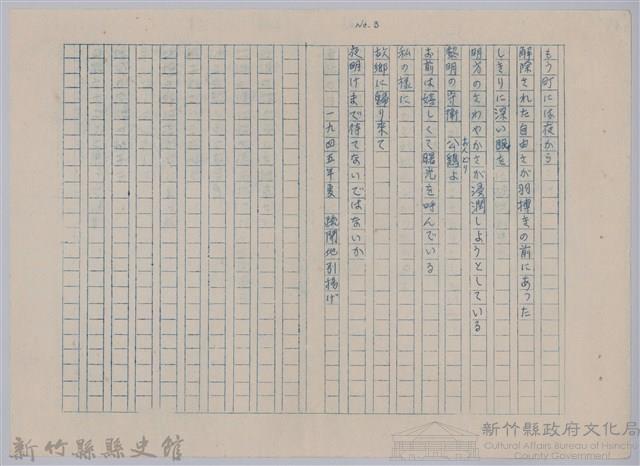 No. 3
もう町には夜から
解除された自由さが羽搏きの前にあった
しきりに深い眠を
明方のさわやかさが浸潤しようとしている
黎明の守衛 公鶏よ
おんどり
お前は嬉しくて曙光を呼んでいる
私の様に
故郷に帰り来て
夜明けまで待てないではないか
一九四五年夏 疎開地引揚げ
新竹縣縣史館
新竹縣政府文化局
Cultural Affairs Bureau of Hsinchu
County Government